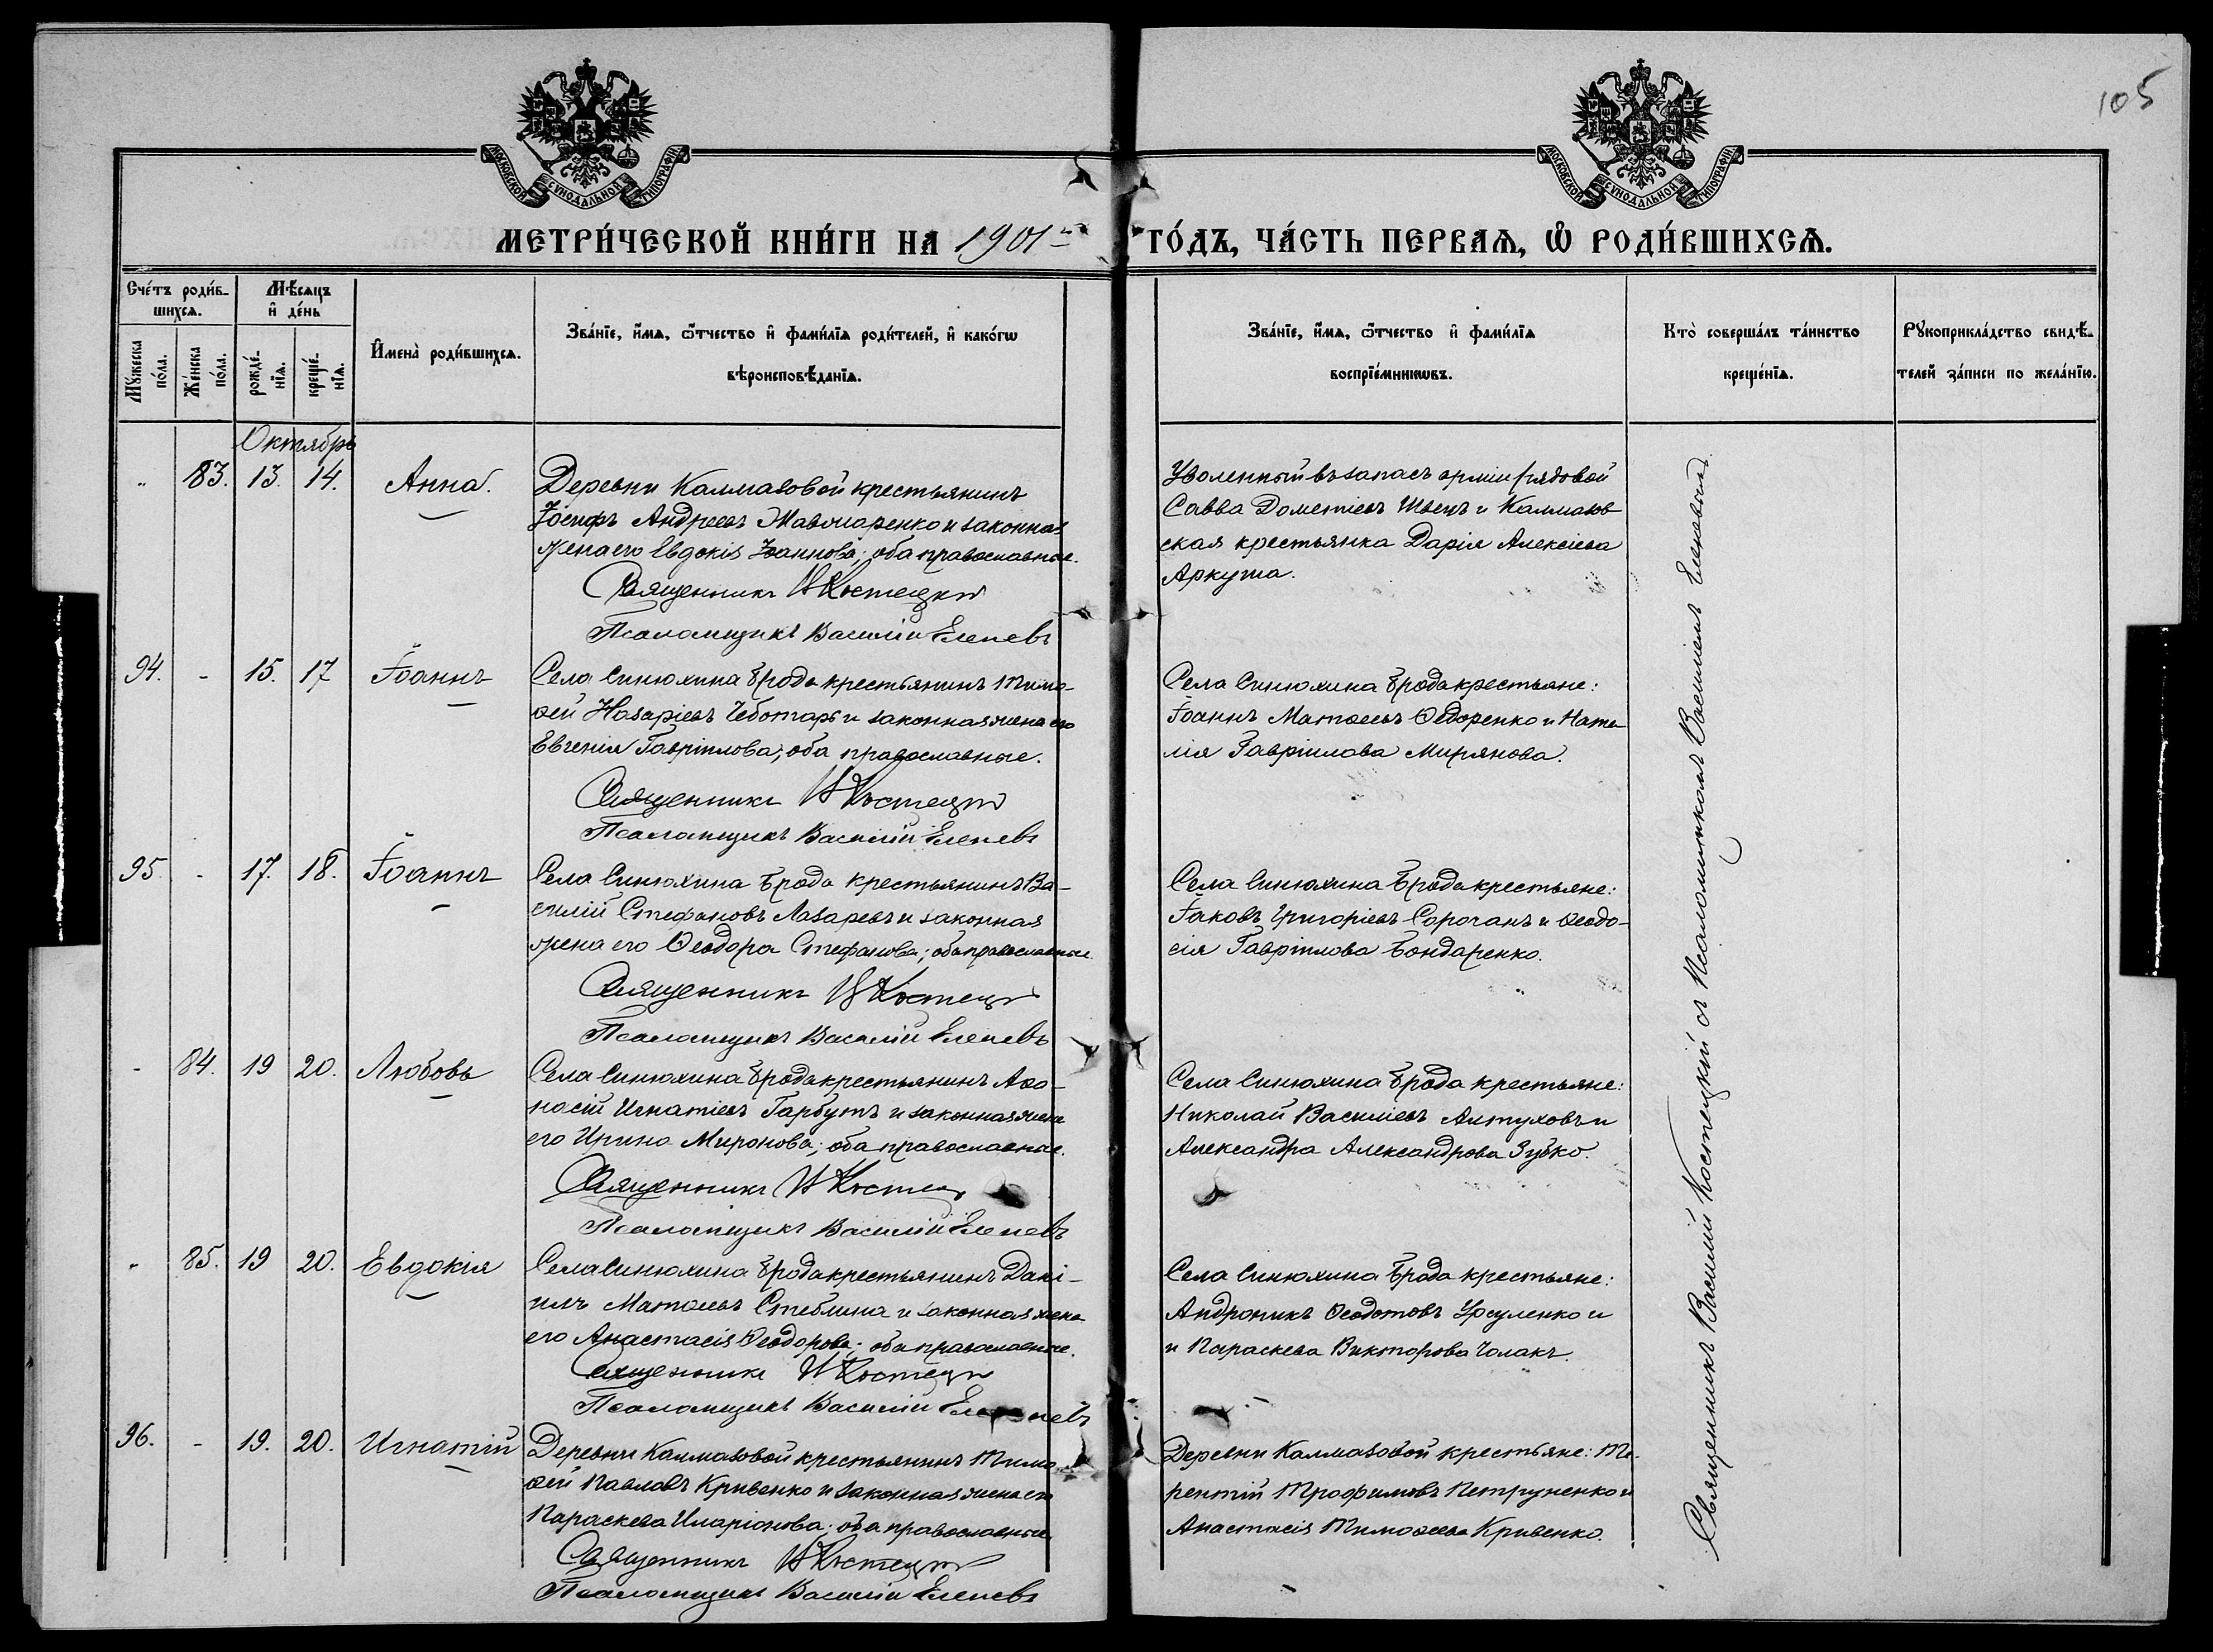 105
МОСКОВСКОЙ СѴНОДАЛЬНОЙ ТИПОГРАФІИ
МОСКОВСКОЙ СѴНОДАЛЬНОЙ ТИПОГРАФІИ
МЕТРИ́ЧЕСКОЙ КНИ́ГИ НА 1901й ГО́ДЪ, ЧА́СТЬ ПЕРВАѦ, Ѡ҆ РОДИ́ВШИХСѦ.
Счéтъ роди́в-
шихсѧ.
Мѣсѧцъ
и҆ дéнь
Мꙋжеска
по́ла.
Жéнска
по́ла.
рождé-
нїѧ.
крещé-
нїѧ.
И҆менà роди́вшихсѧ.
Звáнїе, и҆́мѧ, ѻ҆́тчество и҆ фами́лїѧ роди́телей, и҆ какóгѡ
вѣроисповѣ́данїѧ.
Звáнїе, и҆́мѧ, ѻ҆́тчество и҆ фами́лїѧ
воспрїéмникѡвъ.
Ктò совершáлъ тáинство
крещéнїѧ.
Рꙋкоприклáдство свидѣ́-
телей зáписи по желáнїю.
Октябрь
" 83. 13. 14. Анна.
Деревни Калмазовой крестьянинъ
Іосифъ Андреевъ Мавошаренко и законная
жена его Евдокія Іоаннова; оба православные.
Священникъ В Костецкій
Псаломщикъ Василій Еленевъ
Уволенный въ запасъ арміи рядовой
Савва Дометіевъ Швецъ и Калмазов
ская крестьянка Дарія Алексіева
Аркуша.
94. - 15. 17 Іоаннъ
Села Синюхина Брода крестьянинъ Тимо-
ѳей Назаріевъ Чеботарь и законная жена его
Евгенія Гавріилова; оба православные.
Священникъ В Костецкій
Псаломщикъ Василій Еленевъ
Села Синюхина Брода крестьяне:
Іоаннъ Матѳеевъ Ѳедоренко и Ната
лія Гавріилова Мирянова.
95. - 17. 18. Іоаннъ
Села Синюхина Брода крестьянинъ Ва-
силій Стефановъ Лазаревъ и законная
жена его Ѳеодора Стефанова; оба православные.
Священникъ В Костецкій
Псаломщикъ Василій Еленевъ
Села Синюхина Брода крестьяне:
Іаковъ Григоріевъ Сорочанъ и Ѳеодо-
сія Гавріилова Бондаренко.
- 84. 19 20. Любовь
Села Синюхина Брода крестьянинъ Аѳа-
насій Игнатіевъ Гарбузъ и законная жена
его Ирина Миронова; оба православные.
Священникъ В Костецкій
Псаломщикъ Василій Еленевъ
Села Синюхина Брода крестьяне:
Николай Василіевъ Алтуховъ и
Александра Александрова Зубко.
" 85. 19 20. Евдокія
Села Синюхина Брода крестьянинъ Дані-
илъ Матѳеевъ Стеблина и законная жена
его Анастасія Ѳеодорова; оба православные.
Священникъ В Костецкій
Псаломщикъ Василій Еленевъ
Села Синюхина Брода крестьяне:
Андроникъ Ѳеодотовъ Урсуленко и
и Параскева Викторова Чолакъ.
96. - 19. 20. Игнатій
Деревни Калмазовой крестьянинъ Тимо-
ѳей Павловъ Кривенко и законная жена его
Параскева Иларіонова; оба православные
Священникъ В Костецкій
Псаломщикъ Василій Еленевъ
Деревни Калмазовой крестьяне: Те-
рентій Трофимовъ Петруненко и
Анастасія Тимоѳеева Кривенко.
Священникъ Василій Костецкій съ Псаломщикомъ Василіемъ Еленевымъ.